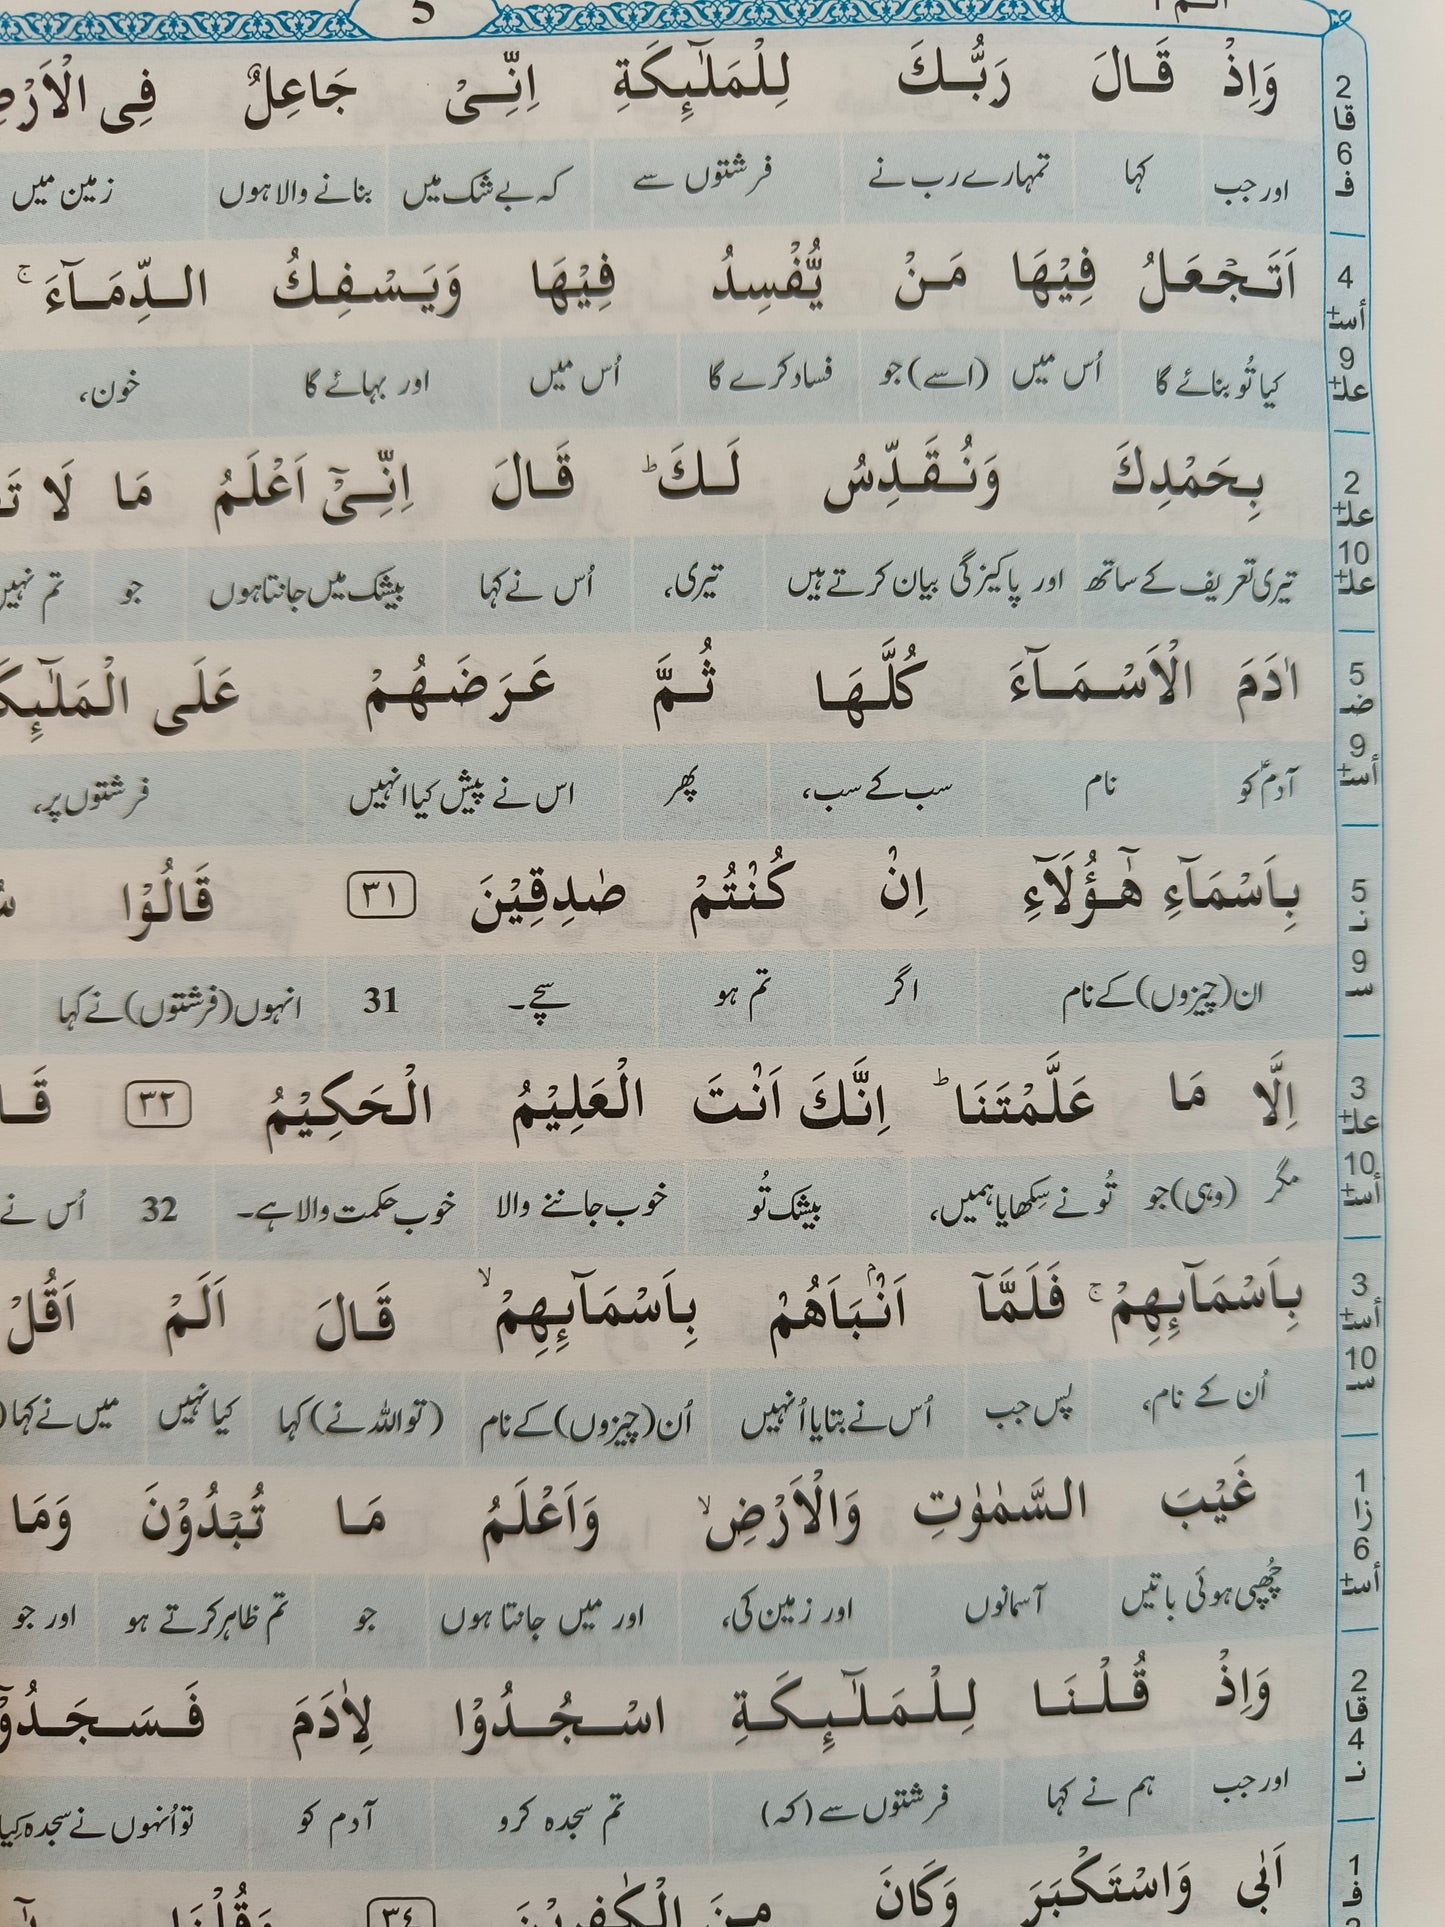 5
وَاِذْ قَالَ رَبُّكَ لِلْمَلٰٓئِكَةِ اِنِّىْ جَاعِلٌ فِى
اور جب کہا تمہارے رب نے فرشتوں سے کہ بے شک میں بنانے والا ہوں زمین میں
اَتَجْعَلُ فِيْهَا مَنْ يُّفْسِدُ فِيْهَا وَيَسْفِكُ الدِّمَآءَ ۚ
کیا تُو بنائے گا اُس میں (اسے) جو فساد کرے گا اُس میں اور بہائے گا خون،
بِحَمْدِكَ وَنُقَدِّسُ لَكَ ؕ قَالَ اِنِّىْٓ اَعْلَمُ مَا لَا
تیری تعریف کے ساتھ اور پاکیزگی بیان کرتے ہیں تیری، اُس نے کہا بیشک میں جانتا ہوں جو تم
اٰدَمَ الْاَسْمَآءَ كُلَّهَا ثُمَّ عَرَضَهُمْ عَلَى
آدمؑ کو نام سب کے سب، پھر اس نے پیش کیا انہیں فرشتوں پر،
بِاَسْمَآءِ هٰٓؤُلَآءِ اِنْ كُنْتُمْ صٰدِقِيْنَ ٣١ قَالُوْا
ان (چیزوں) کے نام اگر تم ہو سچے۔ 31 انہوں (فرشتوں) نے کہا
اِلَّا مَا عَلَّمْتَنَا ؕ اِنَّكَ اَنْتَ الْعَلِيْمُ الْحَكِيْمُ ٣٢
مگر (وہی) جو تُو نے سِکھایا ہمیں، بیشک تُو خوب جاننے والا خوب حکمت والا ہے۔ 32 اُس نے
بِاَسْمَآىِٕهِمْ ۚ فَلَمَّآ اَنْۢبَاَهُمْ بِاَسْمَآىِٕهِمْ ۙ قَالَ اَلَمْ اَقُلْ
اُن کے نام، پس جب اُس نے بتایا اُنہیں اُن (چیزوں) کے نام (تو اللہ نے) کہا کیا نہیں میں نے کہا
غَيْبَ السَّمٰوٰتِ وَالْاَرْضِ ۙ وَاَعْلَمُ مَا تُبْدُوْنَ وَمَا
چُھپی ہوئی باتیں آسمانوں اور زمین کی، اور میں جانتا ہوں جو تم ظاہر کرتے ہو اور جو
وَاِذْ قُلْنَا لِلْمَلٰٓئِكَةِ اسْجُدُوْا لِاٰدَمَ
اور جب ہم نے کہا فرشتوں سے (کہ) تم سجدہ کرو آدم کو تو اُنہوں نے سجدہ کیا
اَبٰى وَاسْتَكْبَرَ وَكَانَ مِنَ الْكٰفِرِيْنَ ٣٤
2
قا
6
ف
4
أست
9
علـ
2
علـ
10
علـ
5
ضـ
9
أست
5
نـ
9
سـ
3
علـ
10
أست
3
أست
10
سـ
1
زا
6
أست
2
قا
4
نـ
1
ف